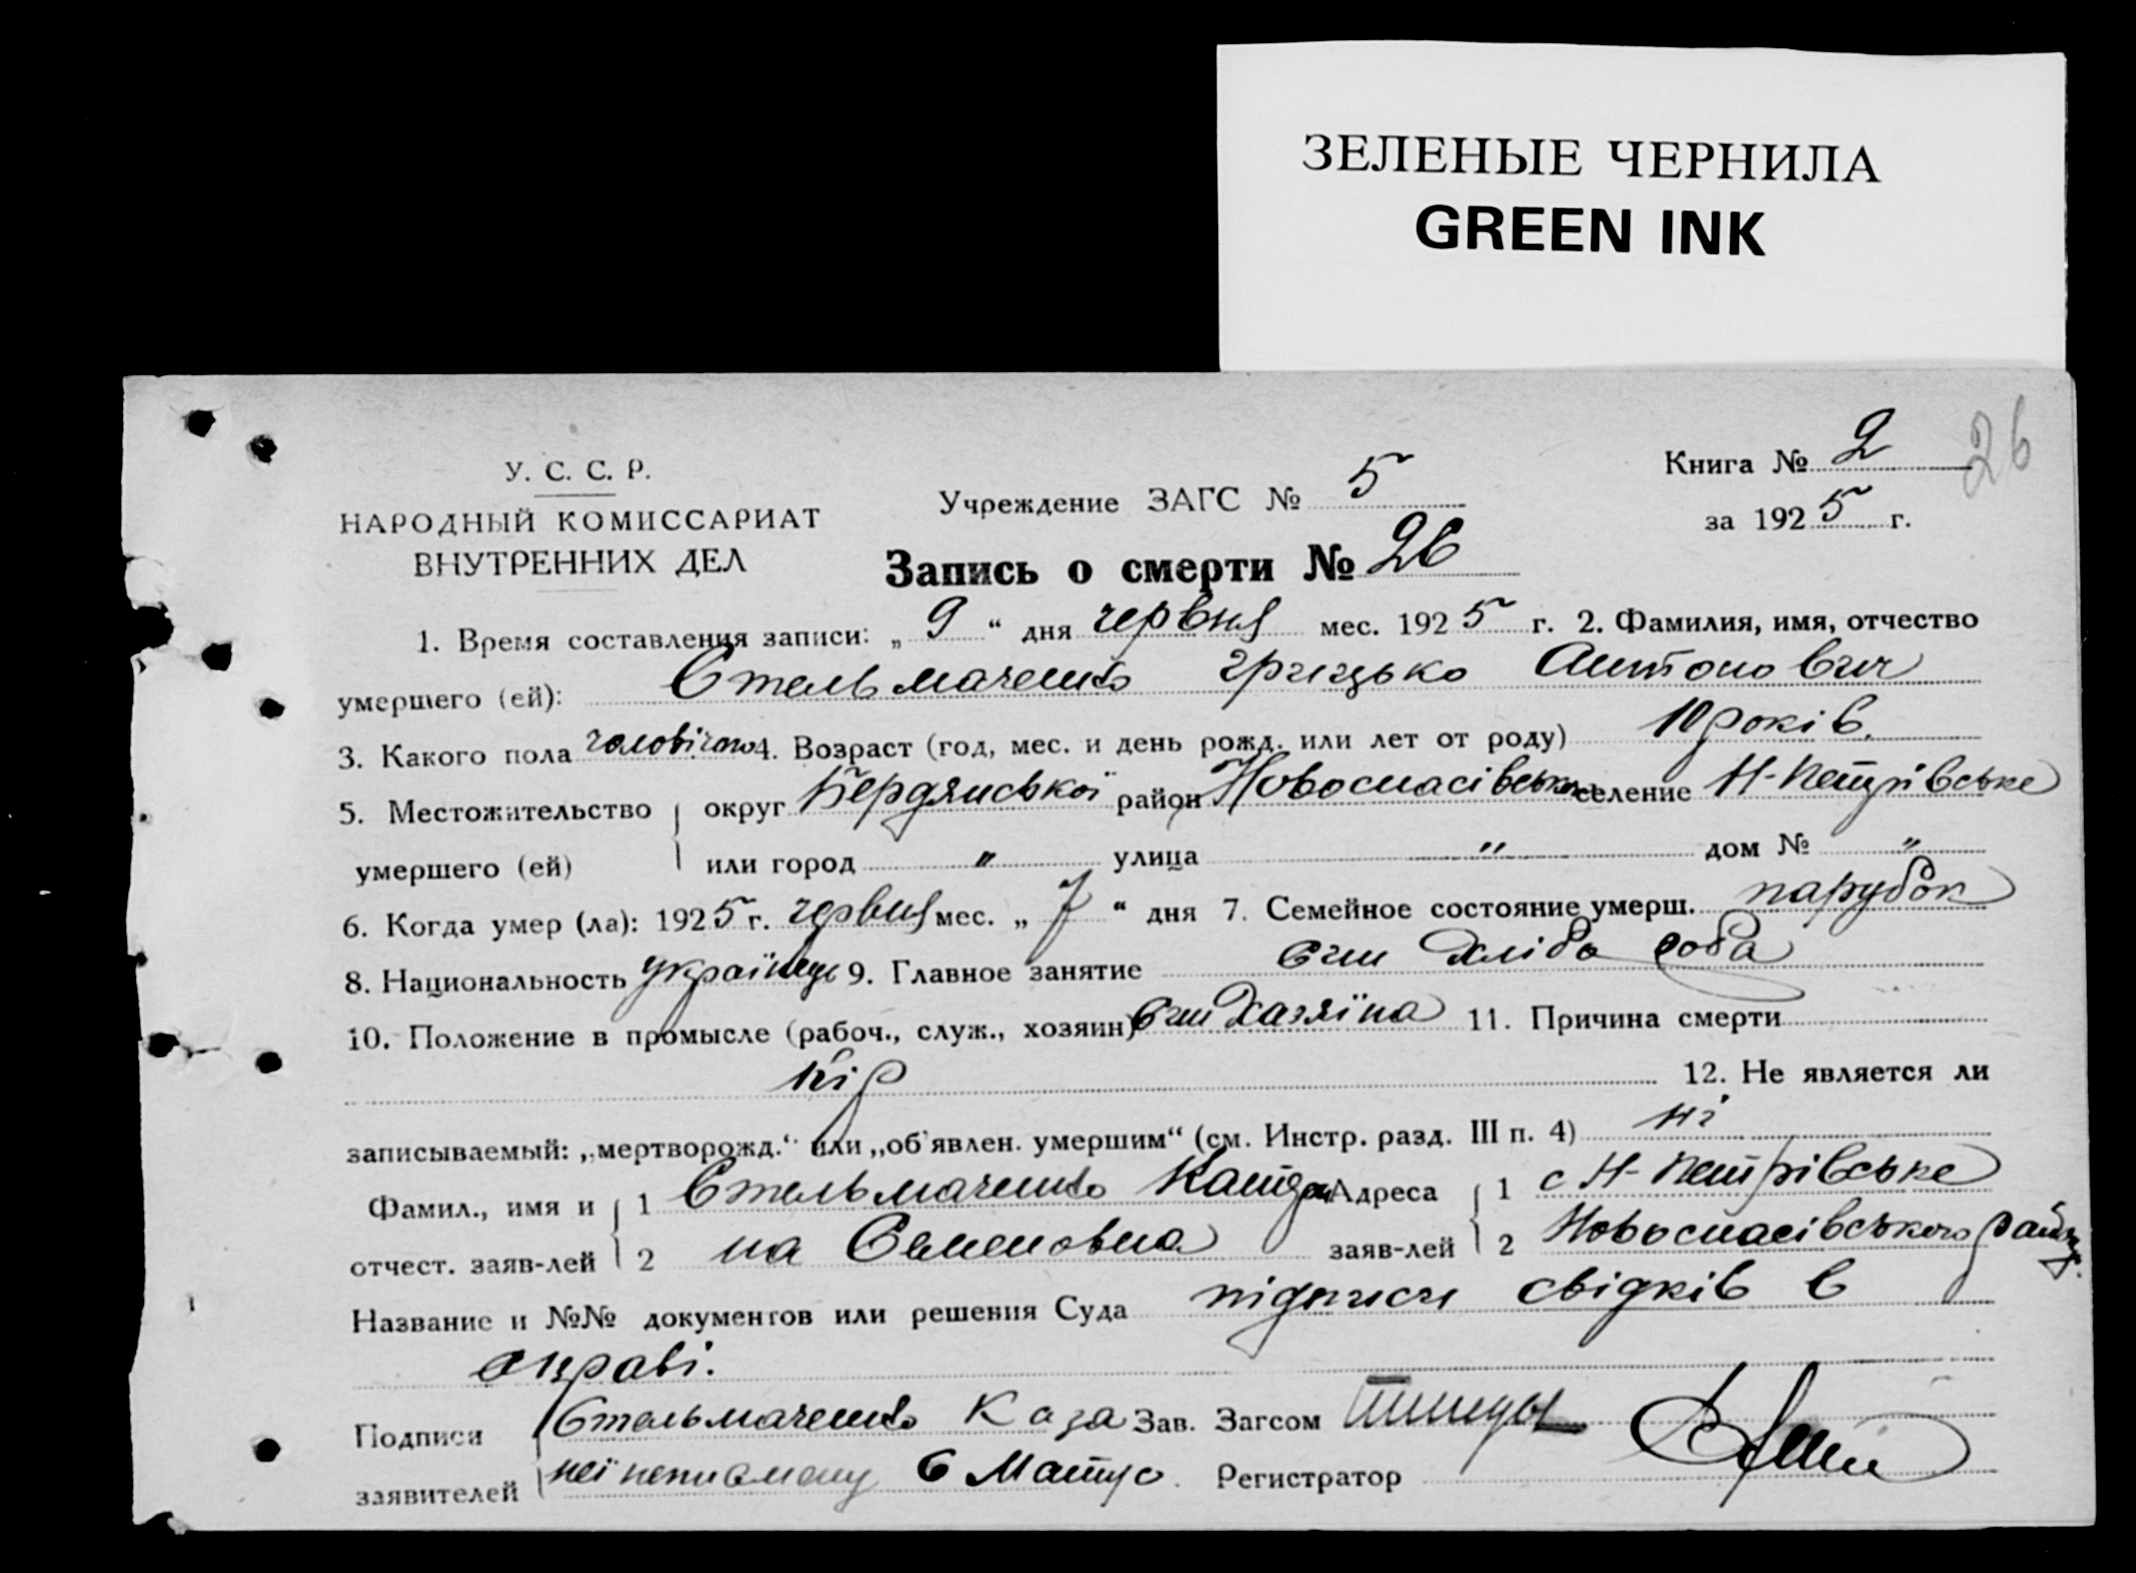 ЗЕЛЕНЫЕ ЧЕРНИЛА
GREEN INK
26
Книга № 2
за 1925 г.
У. С. С. Р.
НАРОДНЫЙ КОМИССАРИАТ
ВНУТРЕННИХ ДЕЛ
Учреждение ЗАГС № 5
Запись о смерти № 26
1. Время составления записи: „ 9 “ дня червня мес. 1925 г. 2. Фамилия, имя, отчество
умершего (ей): Стельмаченко Грицько Антонович
3. Какого пола чоловічого 4. Возраст (год, мес. и день рожд. или лет от роду) 10 років.
5. Местожительство округ Бердянської район Новоспасівськ селение Н-Петрівське
умершего (ей) или город " улица " дом № "
6. Когда умер (ла): 1925 г. червня мес. „ 7 “ дня 7. Семейное состояние умерш. парубок
8. Национальность українець 9. Главное занятие син хліборода
10. Положение в промысле (рабоч., служ., хозяин) син хазяїна 11. Причина смерти
кір 12. Не является ли
записываемый: „мертворожд.“ или „об'явлен. умершим“ (см. Инстр. разд. III п. 4) ні
Фамил., имя и 1 Стельмаченко Катери Адреса 1 с Н-Петрівське
отчест. заяв-лей 2 на Семеновна заяв-лей 2 Новоспасівського району.
Название и №№ документов или решения Суда підписи свідків в
справі.
Подписи Стельмаченко Зав. Загсом
заявителей неписьмену Регистратор